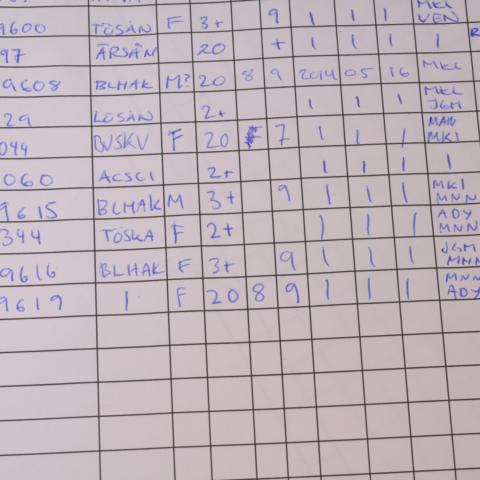 9600 TÖSÀN F 3+ 9 | | | MKL VEN
97 ÄRSÀN 20 + | | | |
9608 BLHAK M? 20 8 9 2014 05 16 MKL
29 LOSÀN 2+ | | | MKL JGM
044 BUSKU F 20 7 | | | MAN MKL
060 ACSCI 2+ | | | |
9615 BLHAK M 3+ 9 | | | MKL MNN
344 TÖSKA F 2+ | | | ADY MNN
9616 BLHAK F 3+ 9 | | | JGM MNN
9619 | F 20 8 9 | | | MNN ADY